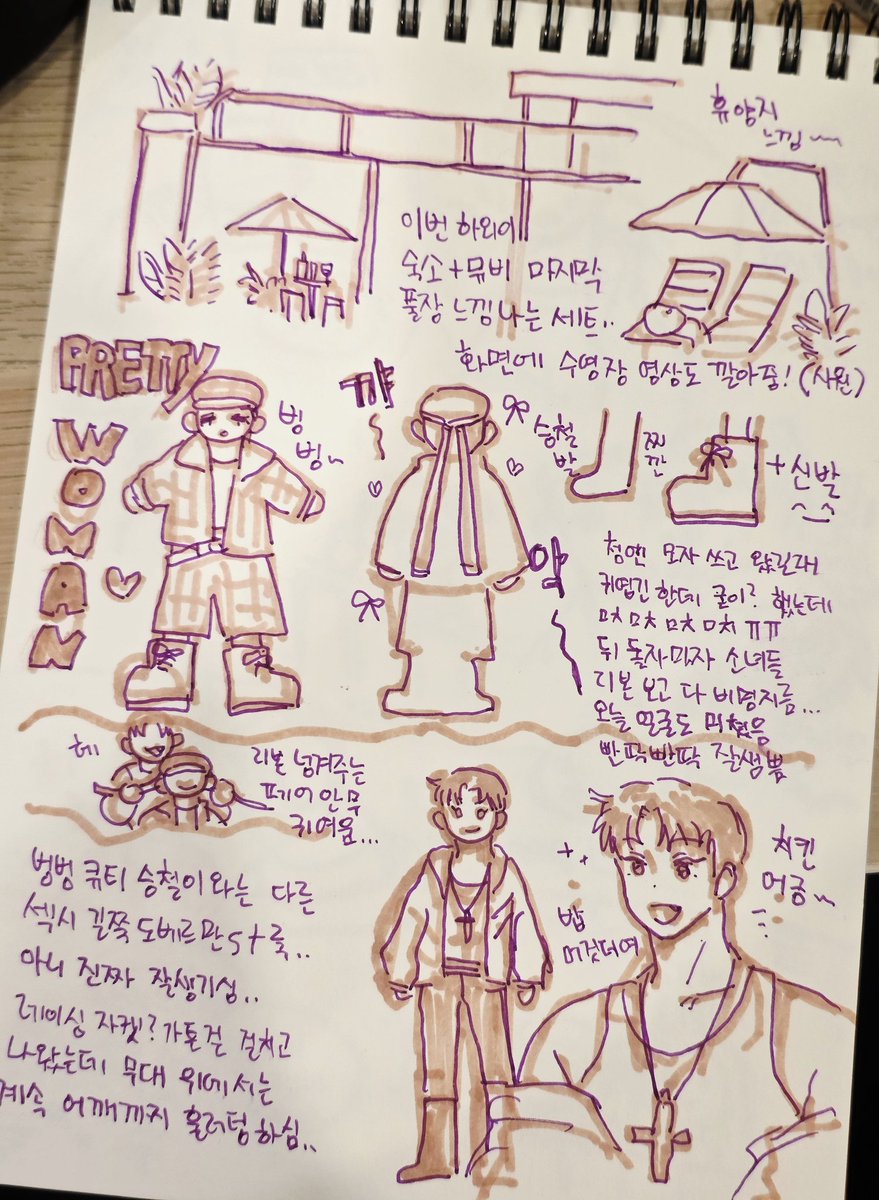 휴양지
느낌~
이번 하와이
숙소+뮤비 마지막
풀장 느낌 나는 세트..
화면에 수영장 영상도 깔아줌! (샤월)
PRETTY
WOMAN
빙
빙~
꺄
~
악
~
승철
발
찌
깐
+신발
^_^
첨엔 모자 쓰고 왔길래
귀엽긴 한데 굳이? 했는데
뒤 돌자마자 소녀들
리본 보고 다 비명지름...
오늘 얼굴도 미쳤음
빤딱빤딱 잘생뿜
헤
리본 넘겨주는
페어안무
귀여움...
벙벙 큐티 승철이와는 다른
섹시 길쭉 도베르만 st 룩..
아니 진짜 잘생기심..
레이싱 자켓? 같은걸 걸치고
나왔는데 무대 위에서는
계속 어깨까지 훌러덩하심..
밥
머겄더여
치킨
어궁~